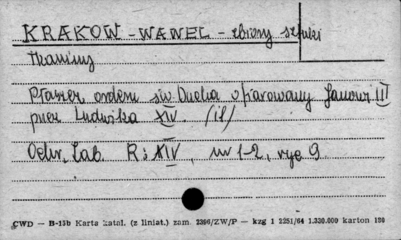 KRAKÓW - WAWEL - zbiory sztuki
Tkaniny
Płaszcz orderu św. Ducha ofiarowany Janowi III
przez Ludwika XIV. (il)
Odw. Zab. R: XIV, nr 1-2, ryc 9
CWD — B-15b Karta katal. (z liniat.) zam. 2396/ZW/P — kzg 1 2251/64 1.330.000 karton 180